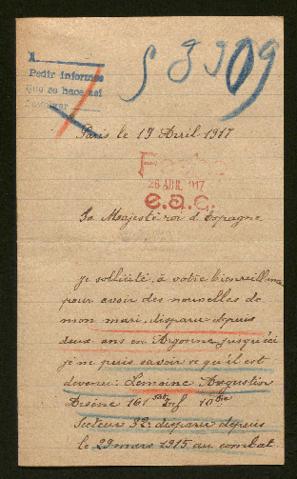 58909
Pedir informes
que se hace así
Paris le 17 Avril 1917
Fecha
26 ABR. 917
e.a.c.
Sa Majesté roi d'Espagne
je sollicite à votre bienveillance
pour avoir des nouvelles de
mon mari disparu depuis
deux ans en Argonne jusqu'ici
je ne puis savoir ce qu'il est
devenu: Lemoine Augustion
Désiré 161 Inf 10 Cie
Secteur 32 disparu depuis
le 29 mars 1915 au combat